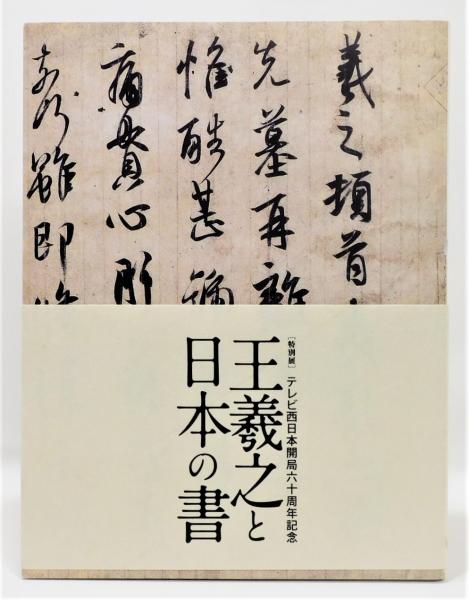 羲之頓首
先墓再離
惟酷甚
痛貫心
奈何雖即
[特別展]テレビ西日本開局六十周年記念
王羲之と
日本の書